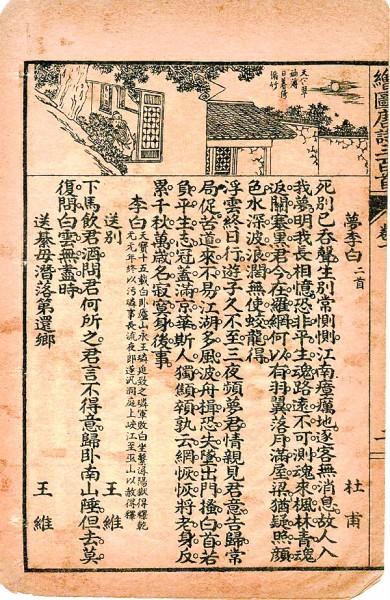 繪圖唐詩三百首
天寒翠
袖薄
日暮倚
脩竹
夢李白 二首 杜甫
死別已吞聲。生別常惻惻。江南瘴癘地。逐客無消息。故人入
我夢。明我長相憶。恐非平生魂。路遠不可測。魂來楓林青。魂
返關塞黑。君今在羅網。何以有羽翼。落月滿屋梁。猶疑照顏
色。水深波浪闊。無使蛟龍得。
浮雲終日行。遊子久不至。三夜頻夢君。情親見君意。告歸常
局促。苦道來不易。江湖多風波。舟楫恐失墜。出門搔白首。若
負平生志。冠蓋滿京華。斯人獨顦顇。孰云網恢恢。將老身反
累。千秋萬歲名。寂寞身後事。
李白 天寶十五載白臥廬山永王璘迫致之璘軍敗白坐繫潯陽獄得釋乾
元元年終以污璘事長流夜郎遂泛洞庭上峽江至巫山以赦得釋
送別 王維
下馬飲君酒。問君何所之。君言不得意。歸臥南山陲。但去莫
復問。白雲無盡時。
送綦毋潛落第還鄉 王維